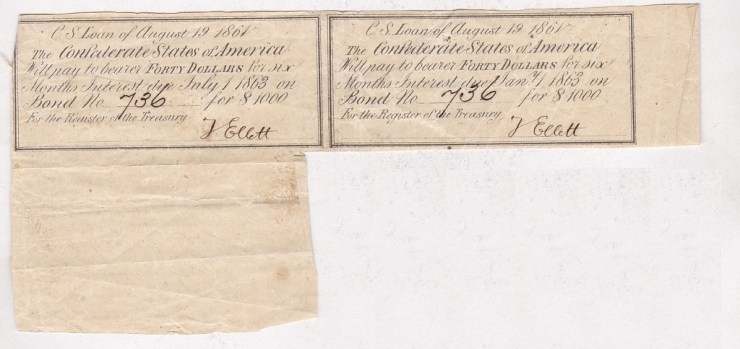 C. S. Loan of August 19 1861
The Confederate States of America
Will pay to bearer FORTY DOLLARS for six
Months Interest due July 1 1863 on
Bond No 736 for $1000
For the Register of the Treasury
J Ellett
C. S. Loan of August 19 1861
The Confederate States of America
Will pay to bearer FORTY DOLLARS for six
Months Interest due Jany 1 1863 on
Bond No 736 for $1000
For the Register of the Treasury
J Ellett